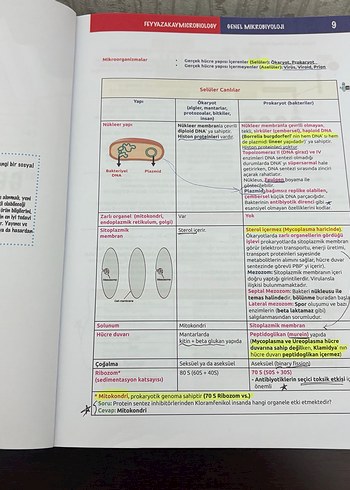 FEYYAZAKAYMICROBIOLOGY GENEL MİKROBİYOLOJİ 9
Mikroorganizmalar
Gerçek hücre yapısı içerenler (Selüler): Ökaryot, Prokaryot
Gerçek hücre yapısı içermeyenler (Aselüler): Virüs, Viroid, Prion
Selüler Canlılar
Yapı
Ökaryot
(algler, mantarlar,
protozoalar, bitkiler,
insan)
Prokaryot (bakteriler)
Nükleer yapı
Bakteriyel
DNA
Plazmid
Nükleer membranla çevrili
diploid DNA' ya sahiptir.
Histon proteinleri vardır
Nükleer membranla çevrili olmayan,
tekli, sirküler (çembersel), haploid DNA
(Borrelia burgdorferi' nin hem DNA' sı hem
de plazmidi lineer yapıdadır)' ya sahiptir.
Histon proteinleri yoktur
Topoizomeraz II (DNA giraz) ve IV
enzimleri DNA sentezi olmadığı
durumlarda DNA' yı süpersarmal hale
getirirken, DNA sentezi sırasında zinciri
açarak rahatlatır.
Nükleus, boyama ile
gösterilebilir.
Plazmid; bağımsız replike olabilen,
çembersel küçük DNA parçacığıdır.
Bakterinin antibiyotik direnci gibi
esansiyel olmayan özelliklerini kodlar.
Zarlı organel (mitokondri,
endoplazmik retikulum, golgi)
Var
Yok
Sitoplazmik
membran
Sterol içerir.
Sterol içermez (Mycoplasma haricinde).
Ökaryotlarda zarlı organellerin gördüğü
işlevi prokaryotlarda sitoplazmik membran
görür (elektron transportu, enerji üretimi,
transport proteinleri sayesinde
metabolitlerin alımını sağlar, hücre duvar
sentezinde görevli PBP' yi içerir).
Mezozom: Sitoplazmik membranın içeri
doğru yaptığı girintilerdir. Virulansla
ilişkisi bulunmamaktadır.
Septal Mezozom: Bakteri nükleusu ile
temas halindedir, bölünme buradan başlar
Lateral mezozom: Spor oluşumu ve bazı
enzimlerin (beta laktamaz gibi)
salgılanmasından sorumludur.
Solunum
Mitokondri
Sitoplazmik membran
Hücre duvarı
Mantarlarda
kitin + beta glukan yapıda
Peptidoglikan (murein) yapıda
(Mycoplasma ve Ureoplasma hücre
duvarına sahip değilken, Klamidya' nın
hücre duvarı peptidoglikan içermez)
Çoğalma
Seksüel ya da aseksüel
Aseksüel (binary fission)
Ribozom*
(sedimentasyon katsayısı)
80 S (60S + 40S)
70 S (50S + 30S)
- Antibiyotiklerin seçici toksik etkisi
önemli
* Mitokondri, prokaryotik genoma sahiptir (70 S Ribozom vs.)
Soru: Protein sentez inhibitörlerinden Kloramfenikol insanda hangi organele etki etmektedir?
Cevap: Mitokondri